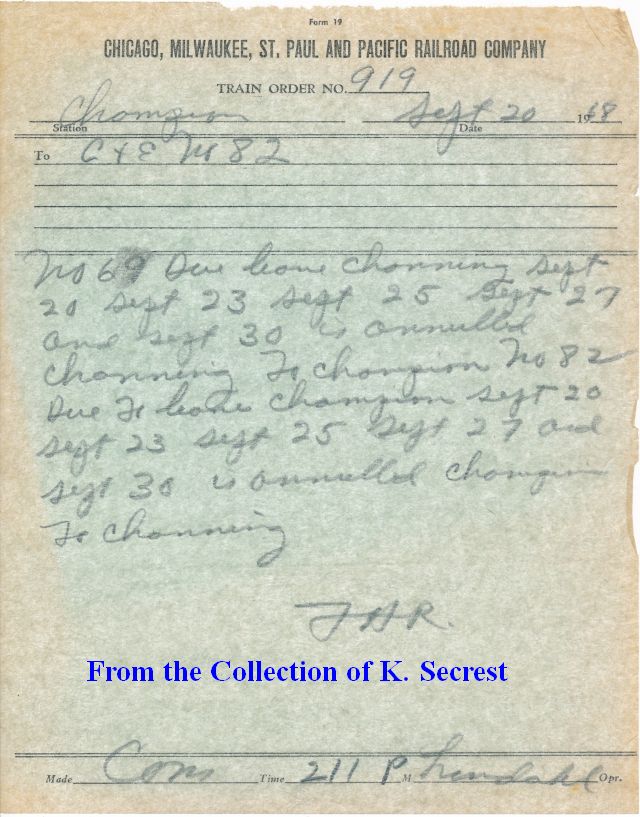 Form 19
CHICAGO, MILWAUKEE, ST. PAUL AND PACIFIC RAILROAD COMPANY
TRAIN ORDER NO. 919
Champion Sept 20 1968
Station Date
To C & E No 82
No 69 Due leave Channing Sept
20 Sept 23 Sept 25 Sept 27
and Sept 30 is annulled
Channing To Champion No 82
Due To leave Champion Sept 20
Sept 23 Sept 25 Sept 27 and
Sept 30 is annulled Champion
To Channing
From the Collection of K. Secrest
Made Com Time 211 P M Opr.